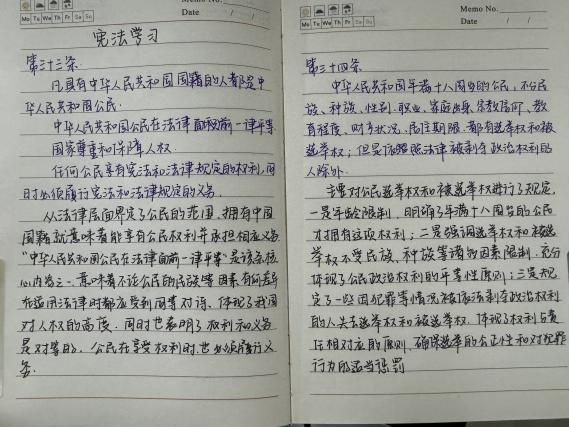 Memo No.
Mo Tu We Th Fr Sa Su
Date / /
宪法学习
第三十三条
凡具有中华人民共和国国籍的人都是中
华人民共和国公民.
中华人民共和国公民在法律面前一律平等
国家尊重和保障人权.
任何公民享有宪法和法律规定的权利,同
时必须履行宪法和法律规定的义务.
从法律层面界定了公民的范围,拥有中国
国籍就意味着能享有公民权利并承担相应义务
"中华人民共和国公民在法律面前一律平等"是该条核
心内容之一.意味着不论公民的民族等因素有何差异
在适用法律时都应受到同等对待、体现了我国
对人权的高度.同时也表明了权利和义务
是对等的,公民在享受权利时,也必须履行义
务.
Memo No.
Mo Tu We Th Fr Sa Su
Date / /
第三十四条
中华人民共和国年满十八周岁的公民,不分民
族、种族、性别、职业、家庭出身、宗教信仰、教
育程度、财产状况、居住期限,都有选举权和被
选举权;但是依照法律被剥夺政治权利的
人除外.
主要对公民选举权和被选举权进行了规定,
一是年龄限制,明确了年满十八周岁的公民
才拥有这项权利;二是强调选举权和被选
举权不受民族、种族等诸多因素限制,充分
体现了公民政治权利的平等性原则;三是规
定了一些因犯罪等情况被依法剥夺政治权利
的人失去选举权和被选举权.体现了权利与责
任相对应的原则、确保选举的公正性和对犯罪
行为的适当惩罚